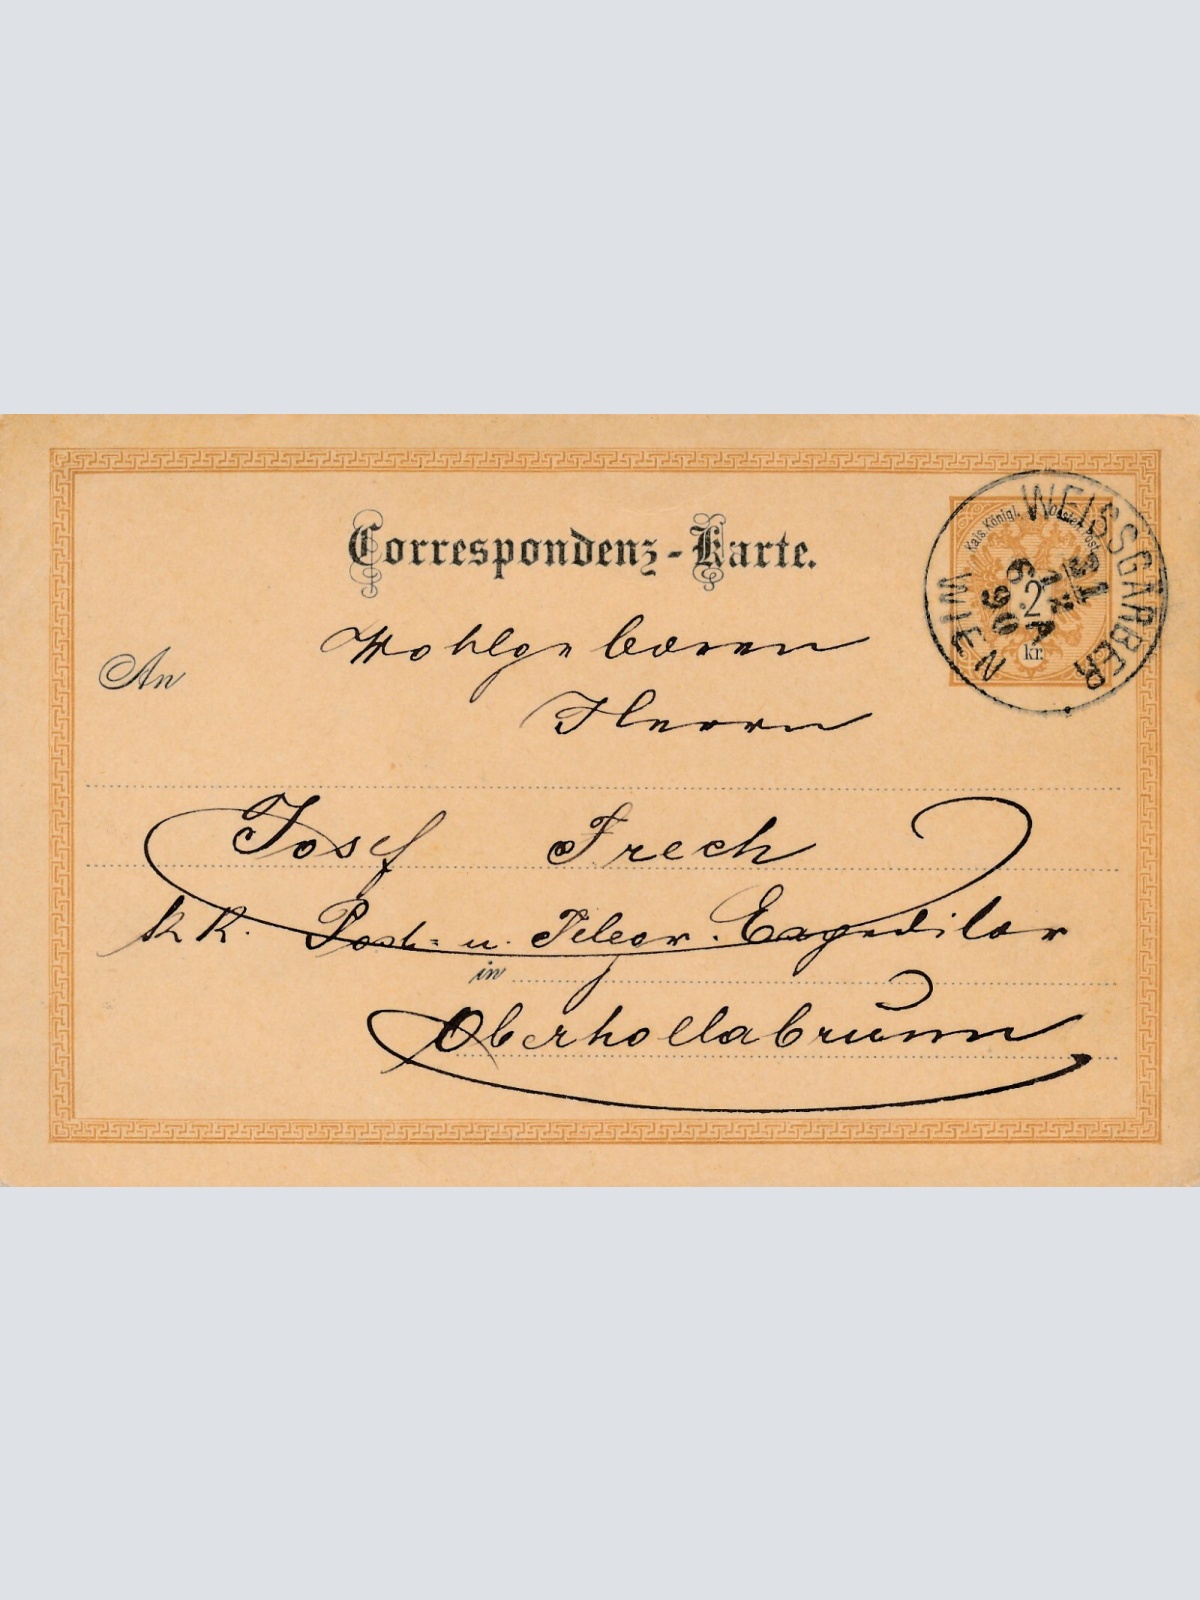 Correspondenz-Karte.
Kais. Königl. Österr. Post
2
kr.
WEISSGÄRBER
WIEN
31
12 A
6
90
An
Wohlgeboren
Herrn
Josef Frech
k. k. Post- u. Telegr. Expeditor
in
Oberhollabrunn